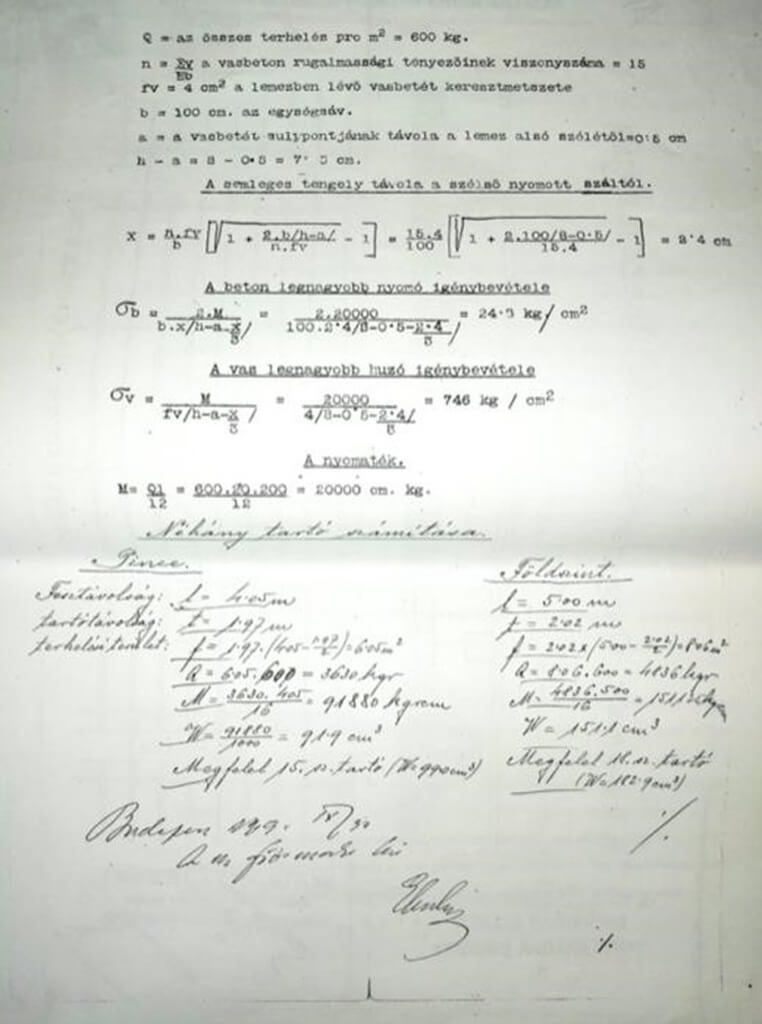 Q = az összes terhelés pro m² = 600 kg.
n = Ev/Eb a vasbeton rugalmassági tényezőinek viszonyszáma = 15
fv = 4 cm² a lemezben lévő vasbetét keresztmetszete
b = 100 cm. az egységsáv.
a = a vasbetét sulypontjának távola a lemez alsó szélétől=0·5 cm
h - a = 8 - 0·5 = 7· 5 cm.
A semleges tengely távola a szélső nyomott száltól.
x = n.fv/b [√1 + 2.b/h-a//n.fv - 1] = 15.4/100 [√1 + 2.100/8-0·5//15.4 - 1] = 2·4 cm
A beton legnagyobb nyomó igénybevétele
σb = 2.M/b.x/h-a-x/3/ = 2.20000/100.2·4/8-0·5-2·4/3/ = 24·9 kg/ cm²
A vas legnagyobb huzó igénybevétele
σv = M/fv/h-a-x/3/ = 20000/4/8-0·5-2·4/3/ = 746 kg / cm²
A nyomaték.
M= Ql/12 = 600.20.200/12 = 20000 cm. kg.
Néhány tartó számítása.
Pince.
Fesztávolság: l = 4·05 m
tartótávolság: t = 1·97 m
terhelési terület: f = 1·97.(4·05-1·97/2)=6·05 m²
Q = 6·05.600 = 3630 kgr
M = 3630.405/16 = 91880 kgrcm
W = 91880/1000 = 91·9 cm³
Megfelel 15. sz. tartó (W=99·0 cm³)
Földszint.
l = 5·00 m
t = 2·02 m
f = 2·02 x (5·00 - 2·02/2)=8·06 m²
Q = 8·06.600 = 4836 kgr
M = 4836.500/16 =
W = 151·1 cm³
Megfelel 18. sz. tartó
(W=182·9 cm³)
Budapest
A
·/.
·/.